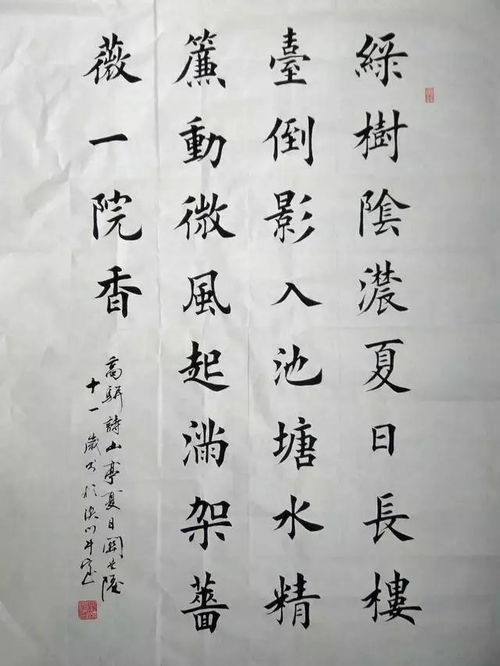 綠樹陰濃夏日長樓
臺倒影入池塘水精
簾動微風起滿架薔
薇一院香
高駢詩山亭夏日
十一歲书於